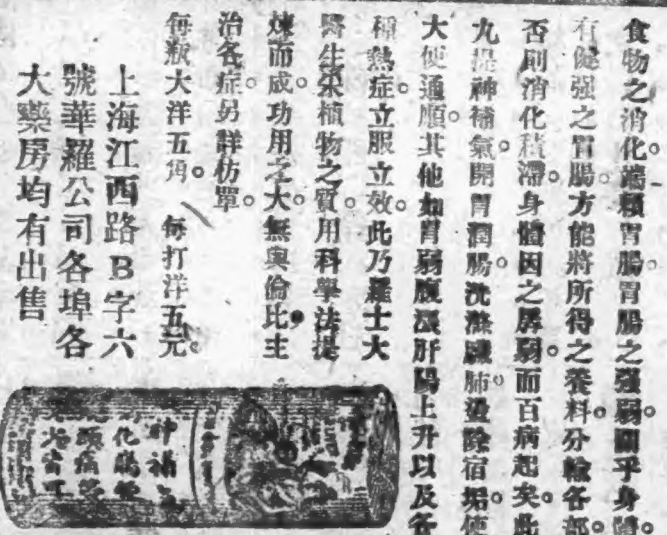 食物之消化端賴胃腸。胃腸之强弱關乎身體。
有健强之胃腸方能將所得之養料。分輸各部。
否則消化積滯。身體因之孱弱。而百病起矣。此
丸提神補氣。開胃潤腸。洗滌臟肺。盪除宿垢。使
大便通順。其他如胃弱腹漲肝陽上升以及各
種熱症。立服立效。此乃羅士大
醫生采植物之質。用科學法提
煉而成。功用之大。無與倫比。主
治各症。另詳仿單。
每瓶大洋五角。 每打洋五元。
上海江西路B字六
號華羅公司各埠各
大藥房均有出售